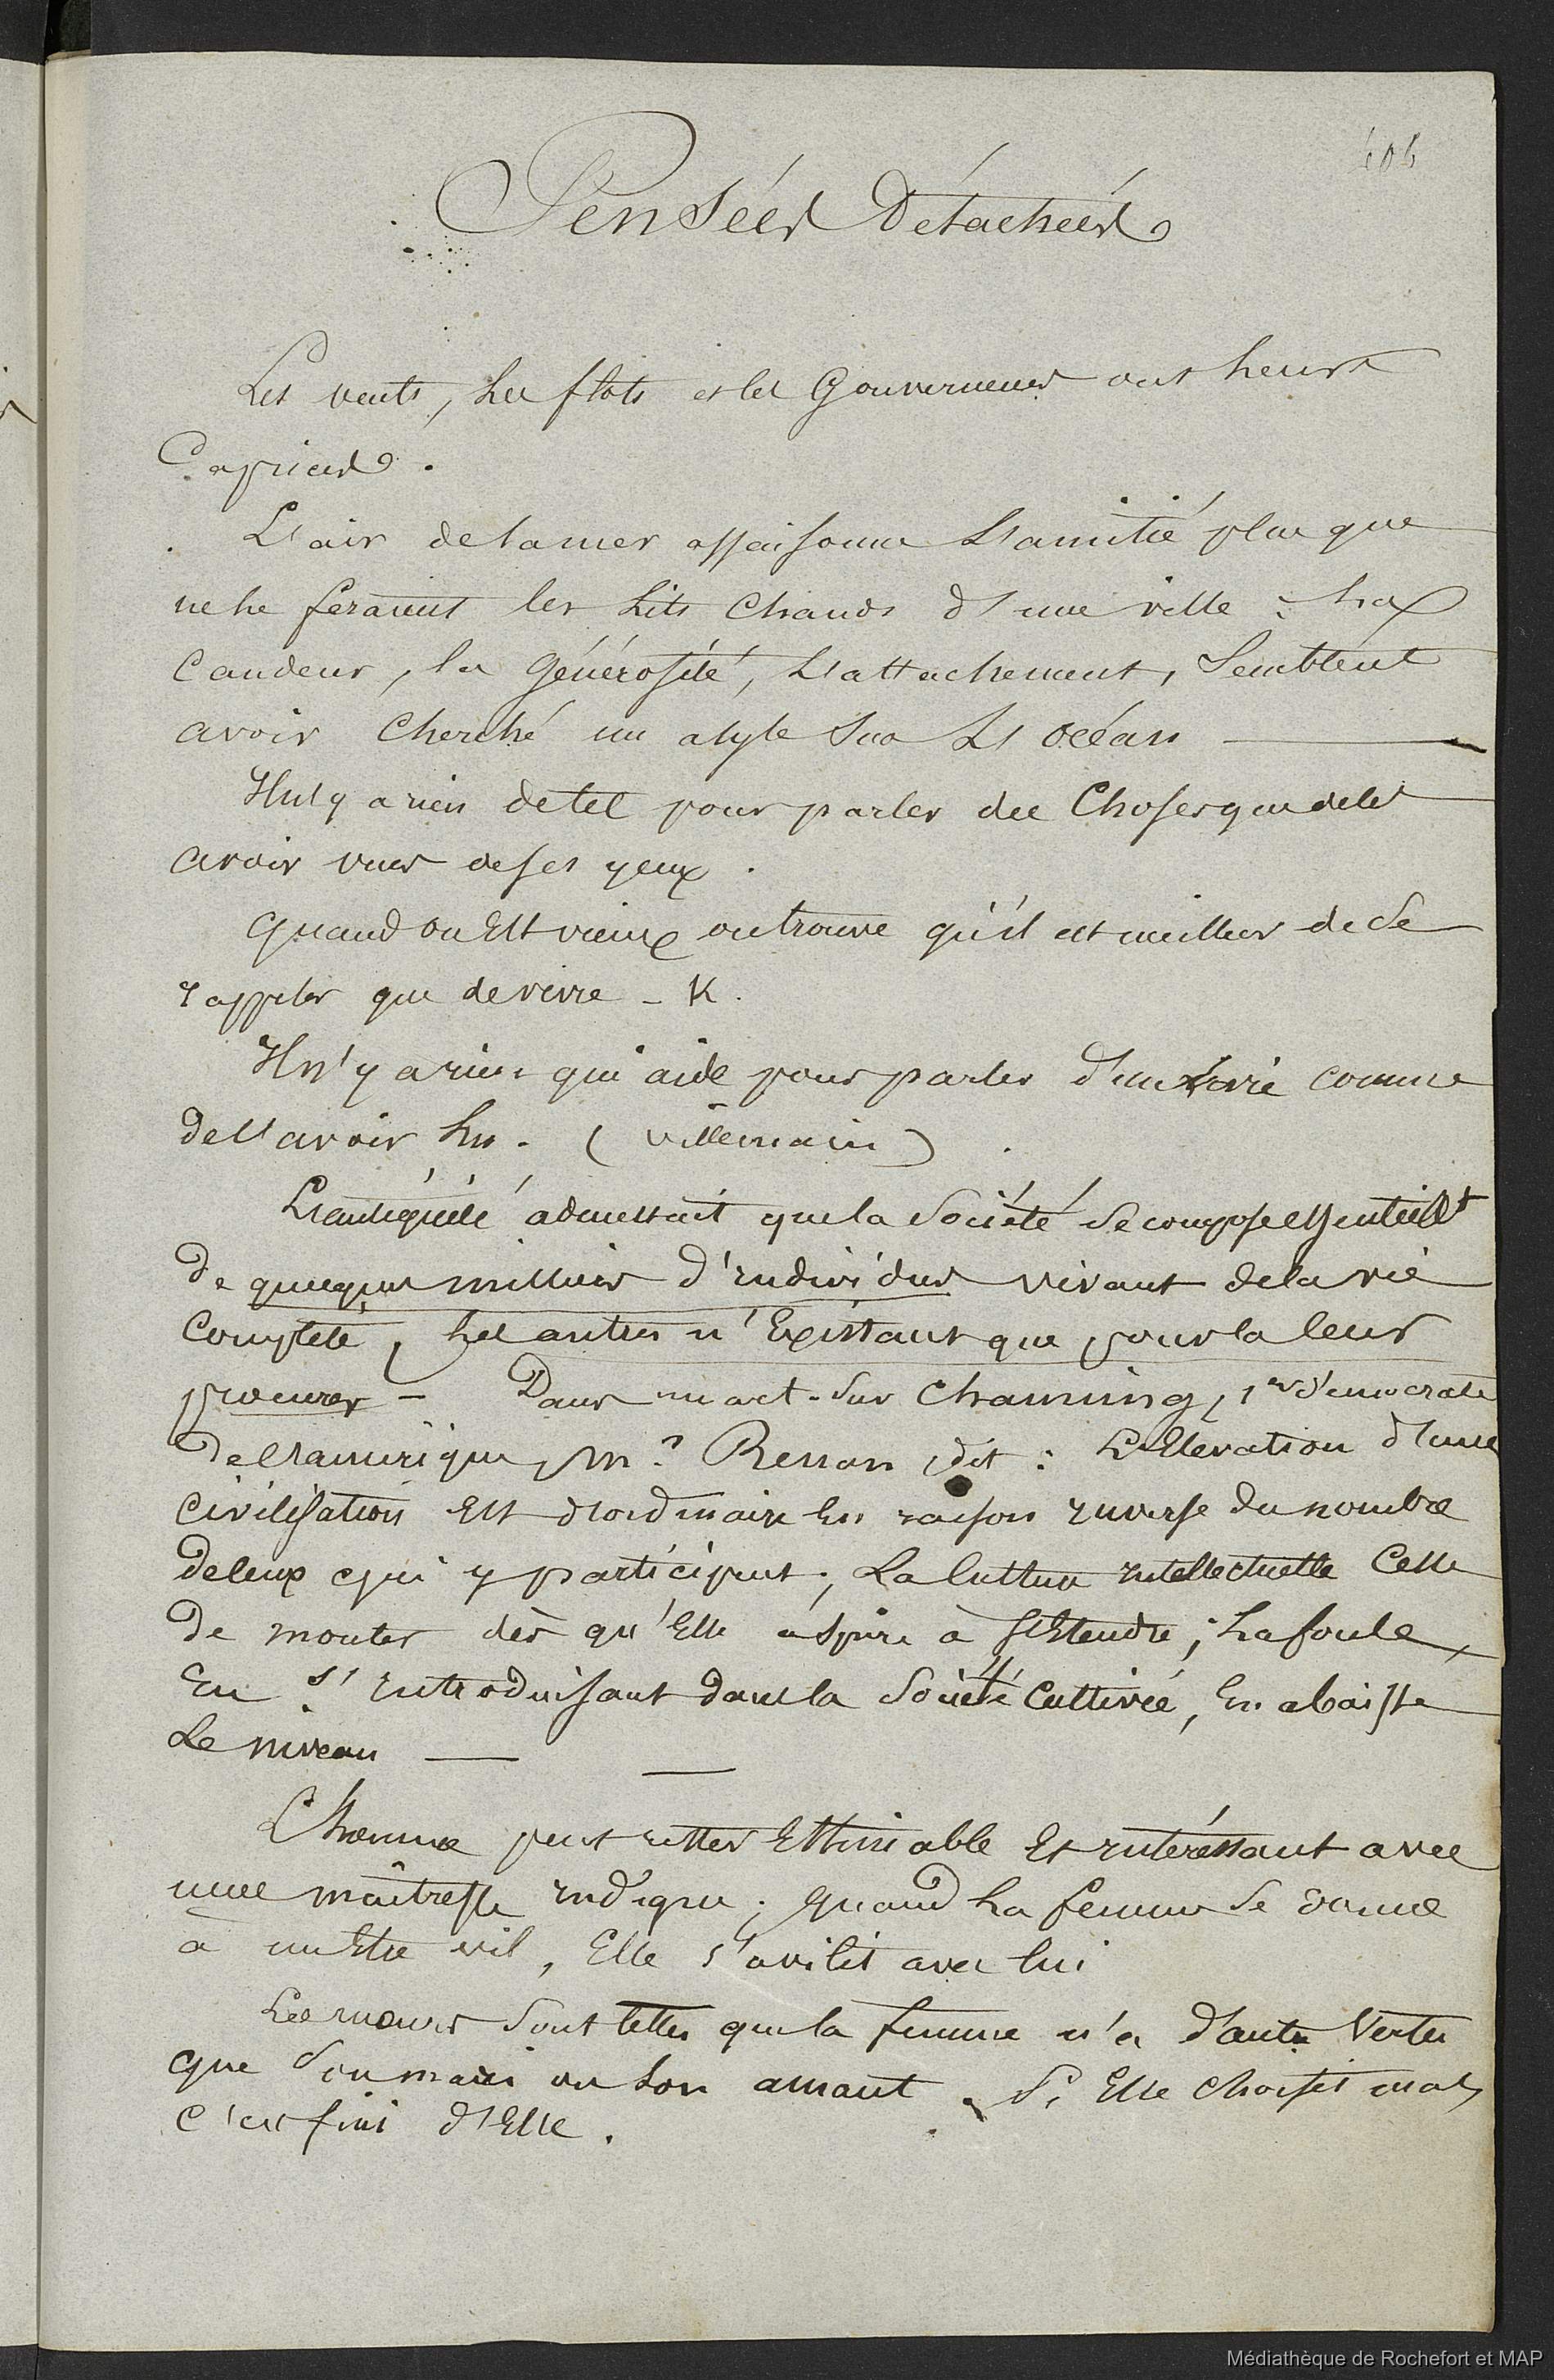 Pensées Détachées
Les vents, les flots et les Gouverneurs ont leurs
Caprices.
L'air de la mer assaisonne L'amitié plus que
ne le feraient les lits Chauds d'une ville : La
Candeur, la Générosité, L'attachement, Semblent
avoir Cherché un asyle Sur L'océan
Il n'y a rien de tel pour parler des Choses que de les
avoir vues de ses yeux.
quand on Est vieux on trouve qu'il est meilleur de Se
rappeler que de vivre - K.
Il n'y a rien qui aide pour parler d'un Livre comme
de l'avoir lu. (Villemain).
L'antiquité admettait que la Société Se compose essentiellt
de quelques milliers d'individus vivant de la vie
Complète, les autres n'Existant que pour la leur
procurer - Dans un art. Sur Channing, 1er démocrate
de l'amérique, Mr Renan dit : L'Elevation d'une
Civilisation Est d'ordinaire En raison inverse du nombre
de ceux qui y participent ; La Culture intellectuelle Cesse
de monter dès qu'Elle aspire à s'Etendre ; La foule,
En s'introduisant dans la Société Cultivée, En abaisse
Le niveau
L'homme peut rester Estimable Et intéressant avec
une maîtresse indigne ; quand La femme Se donne
à un Etre vil, Elle s'avilit avec lui
Les mœurs Sont telles que la femme n'a d'autre Vertu
que Son mari ou Son amant. Si Elle Choisit mal,
C'est fini d'Elle.
Médiathèque de Rochefort et MAP